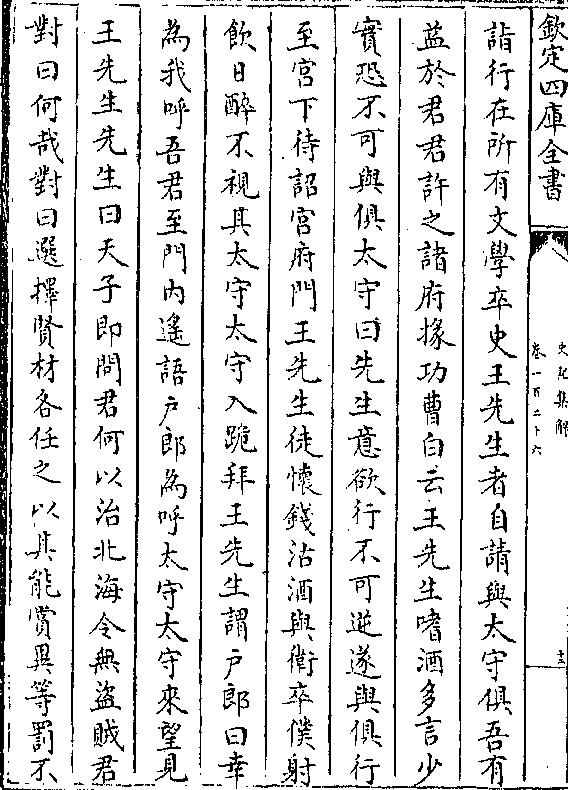 欽定四庫全書
史記集解
卷一百二十六
十三
詣行在所有文學卒史王先生者自請與太守俱吾有
益於君君許之諸府掾功曹白云王先生嗜酒多言少
實恐不可與俱太守曰先生意欲行不可逆遂與俱行
至宮下待詔宮府門王先生徒懷錢沽酒與衛卒僕射
飲日醉不視其太守太守入跪拜王先生謂户郎曰幸
為我呼吾君至門内遙語户郎為呼太守太守來望見
王先生先生曰天子即問君何以治北海令無盜賊君
對曰何哉對曰選擇賢材各任之以其能賞異等罰不